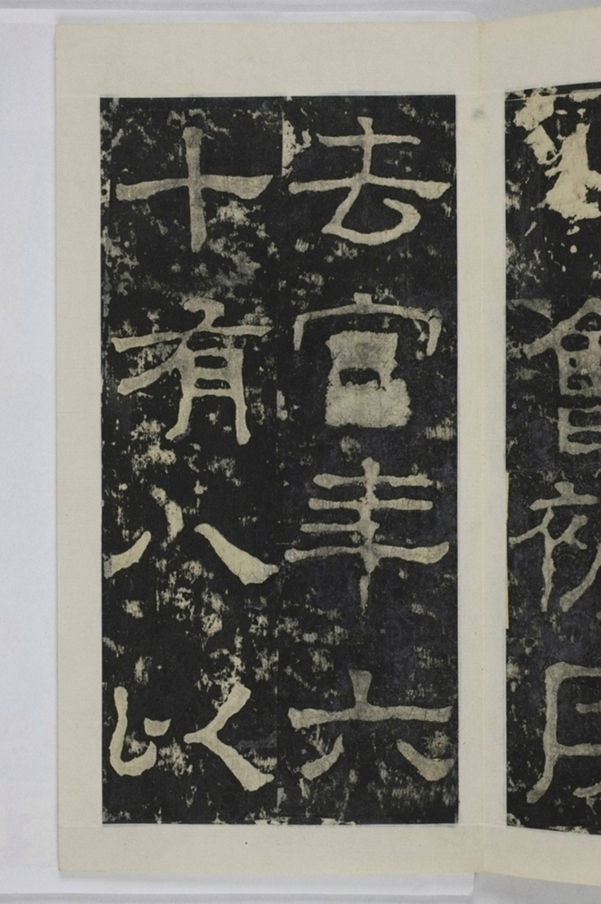 會
去官年六
十有八以